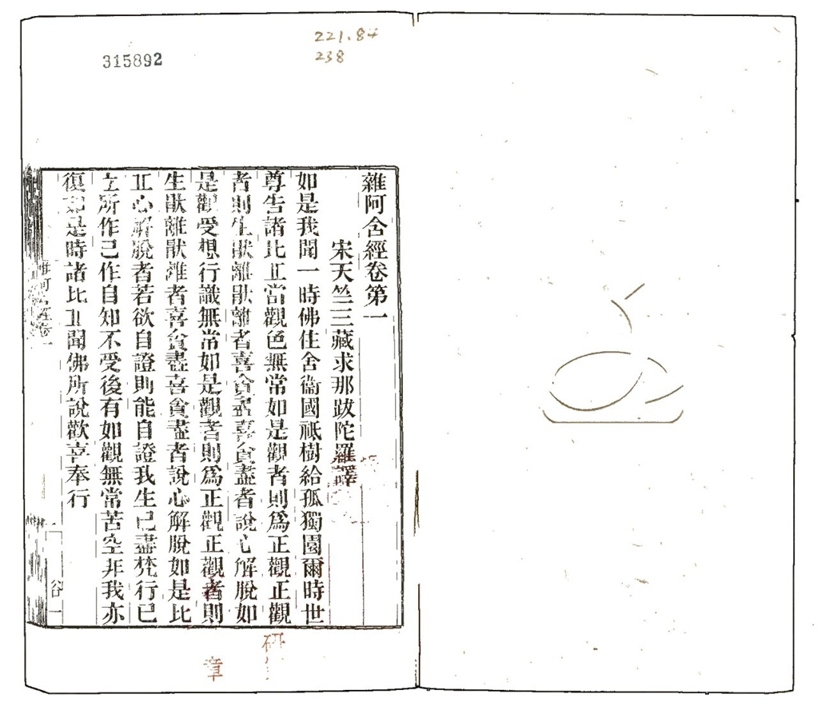 315892
221.84
238
雜阿含經卷第一
宋天竺三藏求那跋陀羅譯
如是我聞一時佛住舍衞國祇樹給孤獨園爾時世
尊告諸比丘當觀色無常如是觀者則爲正觀正觀
者則生猒離猒離者喜貪盡喜貪盡者說心解脫如
是觀受想行識無常如是觀者則爲正觀正觀者則
生猒離猒離者喜貪盡喜貪盡者說心解脫如是比
丘心解脫者若欲自證則能自證我生已盡梵行已
立所作已作自知不受後有如觀無常苦空非我亦
復如是時諸比丘聞佛所說歡喜奉行
雜阿含經卷一
一
谷一
研
章